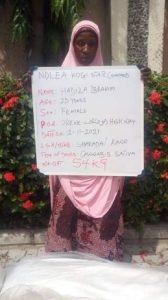 NDLEA KOGI STAR COMMAND
NAME: HADIZA IBRAHIM
AGE: 20 YEARS
SEX: FEMALE
P.O.A: OKENE LOKOJA HIGH WAY
DATE OF: 2-11-2021
LGA/STATE: SHARADA/ KANO
TYPE OF DRUG: CANNABIS SATIVA
WEIGHT: 5.4KG